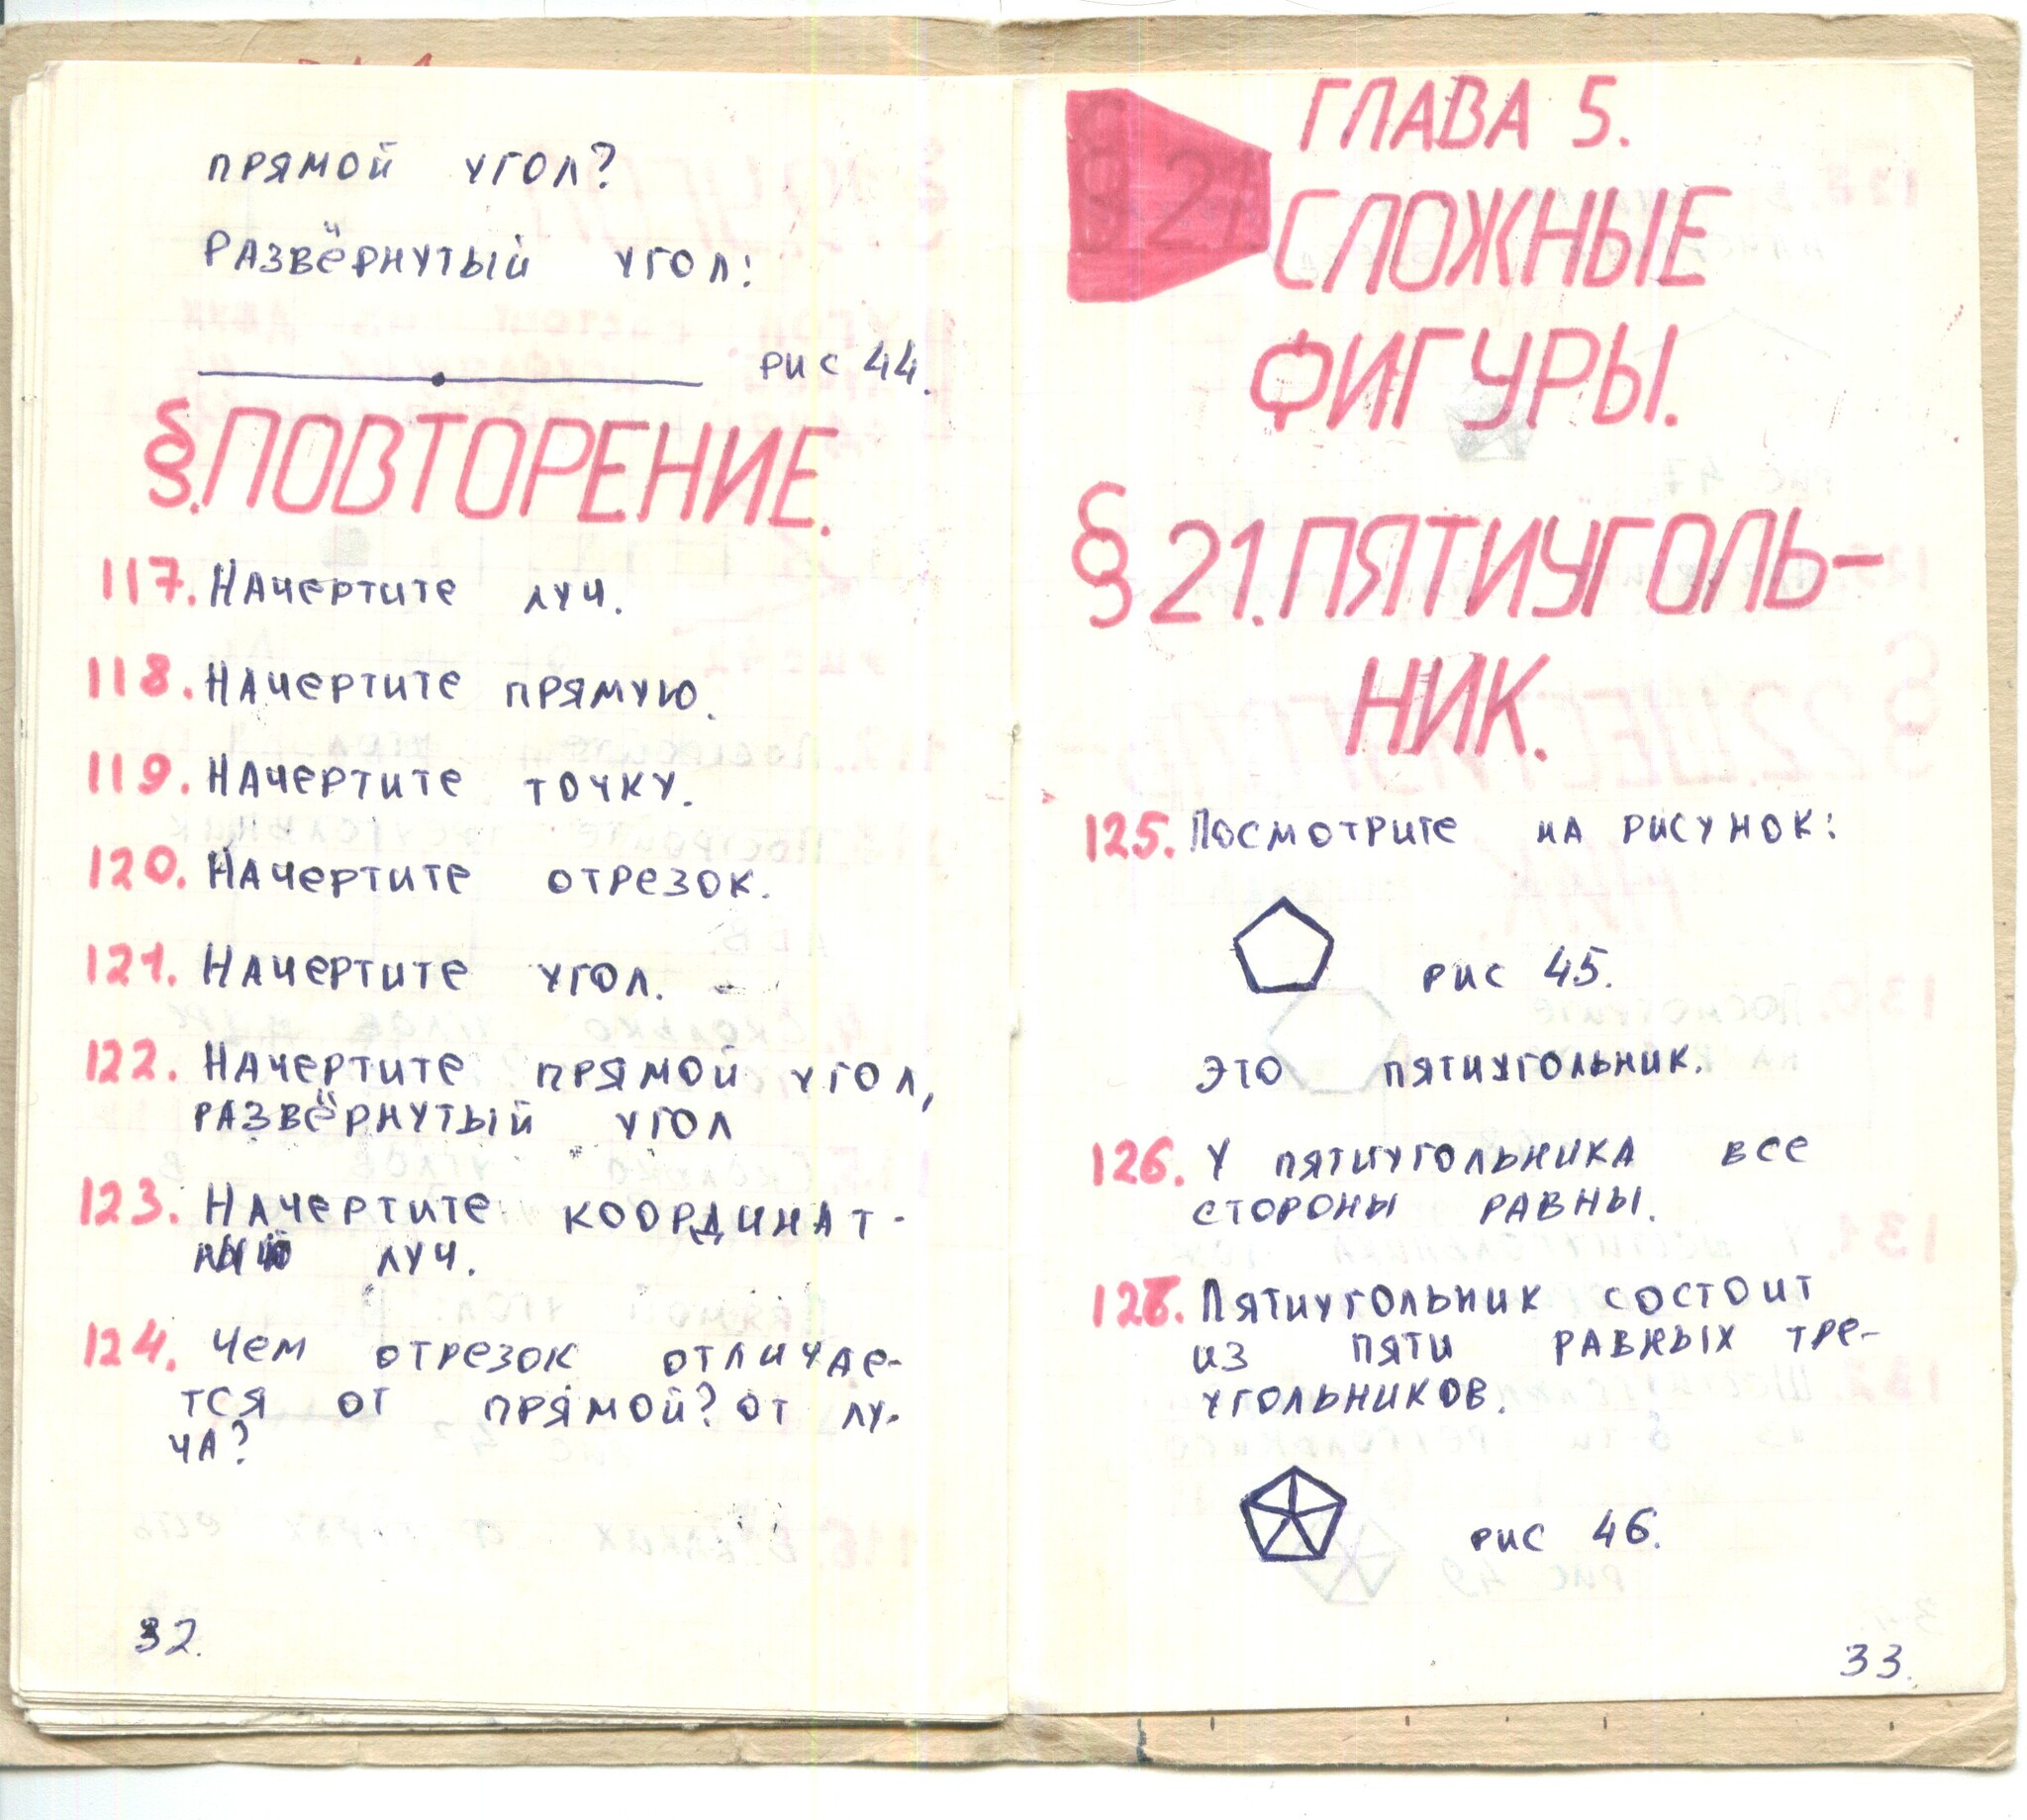 прямой угол?
Развёрнутый угол:
рис 44.
§. ПОВТОРЕНИЕ.
117. Начертите луч.
118. Начертите прямую.
119. Начертите точку.
120. Начертите отрезок.
121. Начертите угол.
122. Начертите прямой угол,
развёрнутый угол
123. Начертите координат-
ный луч.
124. Чем отрезок отличае-
тся от прямой? от лу-
ча?
32.
§ 21
ГЛАВА 5.
СЛОЖНЫЕ
ФИГУРЫ.
§ 21. ПЯТИУГОЛЬ-
НИК.
125. Посмотрите на рисунок:
рис 45.
это пятиугольник.
126. У пятиугольника все
стороны равны.
127. Пятиугольник состоит
из пяти равных тре-
угольников.
рис 46.
33.